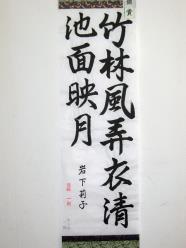 竹林風弄衣清
池面映月
岩下莉子